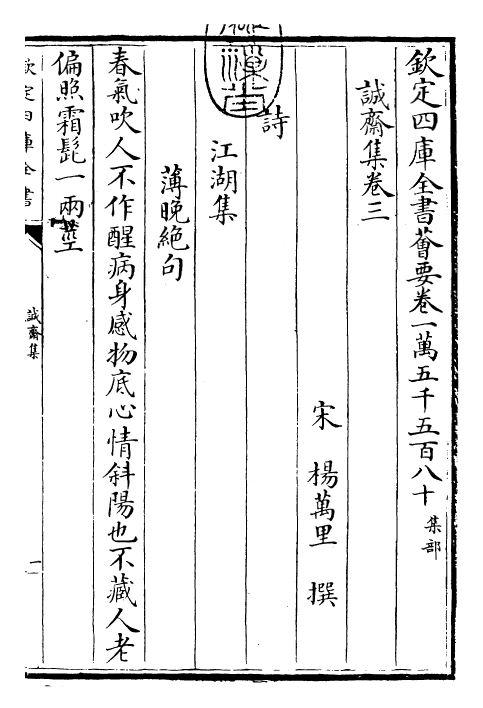 欽定四庫全書薈要卷一萬五千五百八十 集部
誠齋集卷三
宋 楊萬里 撰
詩
江湖集
薄晚絕句
春氣吹人不作醒病身感物底心情斜陽也不藏人老
偏照霜髭一兩莖
欽定四庫全書
誠齋集
一